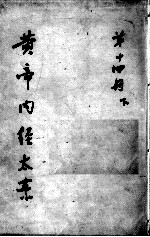 第十四册 下
黄帝内经太素